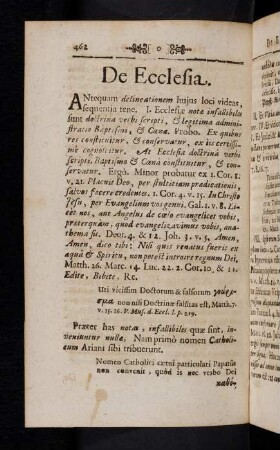 462
De Ecclesia.
ANtequam delineationem hujus loci videas,
sequentia tene. I. Ecclesiæ notæ infallibiles
sunt doctrina verbi scripti, & legitima admini-
stratio Baptismi, & Cœnæ. Probo. Ex quibus
res constituitur, & conservatur, ex iis certissime
cognoscitur. At Ecclesia doctrinâ verbi
scripti, Baptismo & Cœnâ constituitur, & con-
servatur. Ergò. Minor probatur ex 1. Cor. 1:
v. 21. Placuit Deo, per stultitiam prædicationis,
salvos facere credentes. 1. Cor. 4. v. 15. In Christo
Jesu, per Evangelium vos genui. Gal. 1. v. 8. Li-
cet nos, aut Angelus de cœlo evangelicet vobis,
præterquàm, quod evangelizavimus vobis, ana-
thema sit. Deut. 4. & 12. Joh. 3. v. 5. Amen,
Amen, dico tibi: Nisi quis renatus fuerit ex
aquâ & Spiritu, non potest introire regnum Dei,
Matth. 26. Marc. 14. Luc. 22. 1. Cor. 10, & 11.
Edite, Bibite. Rc.
Uti vicissim Doctorum & falsorum
non nisi Doctrinæ falsitas est, Matth. 7.
v. 15. 16. P. Mus. d. Eccl. I. p. 219.
Præter has notæ, infallibiles quæ sint, in-
veniuntur nullæ. Nam primò nomen Catholi-
cum Ariani sibi tribuerunt.
Nomen Catholici cœtui particulari Papatûs
non convenit, quòd is nec verbo Dei